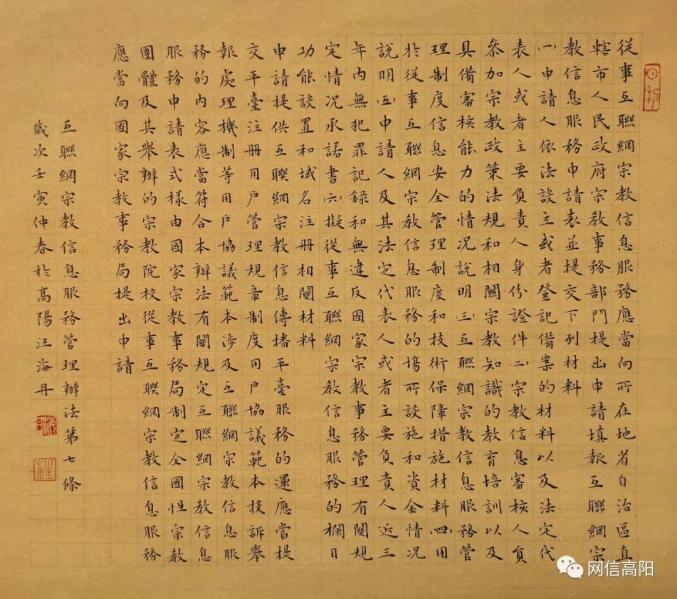 從事互聯網宗教信息服務應當向所在地省自治區直
轄市人民政府宗教事務部門提出申請填報互聯網宗
教信息服務申請表並提交下列材料
㈠申請人依法設立或者登記備案的材料以及法定代
表人或者主要負責人身份證件㈡宗教信息審核人員
參加宗教政策法規和相關宗教知識的教育培訓以及
具備審核能力的情況說明㈢互聯網宗教信息服務管
理制度信息安全管理制度和技術保障措施材料㈣用
於從事互聯網宗教信息服務的場所設施和資金情況
說明㈤申請人及其法定代表人或者主要負責人近三
年內無犯罪記錄和無違反國家宗教事務管理有關規
定情況承諾書㈥擬從事互聯網宗教信息服務的欄目
功能設置和域名註冊相關材料
申請提供互聯網宗教信息傳播平臺服務的還應當提
交平臺注册用戶管理規章制度用戶協議範本投訴舉
報處理機制等用戶協議範本涉及互聯網宗教信息服
務的內容應當符合本辦法有關規定互聯網宗教信息
服務申請表式樣由國家宗教事務局制定全國性宗教
團體及其舉辦的宗教院校從事互聯網宗教信息服務
應當向國家宗教事務局提出申請
互聯網宗教信息服務管理辦法第七條
歲次壬寅仲春於高陽汪海丹
网信高阳